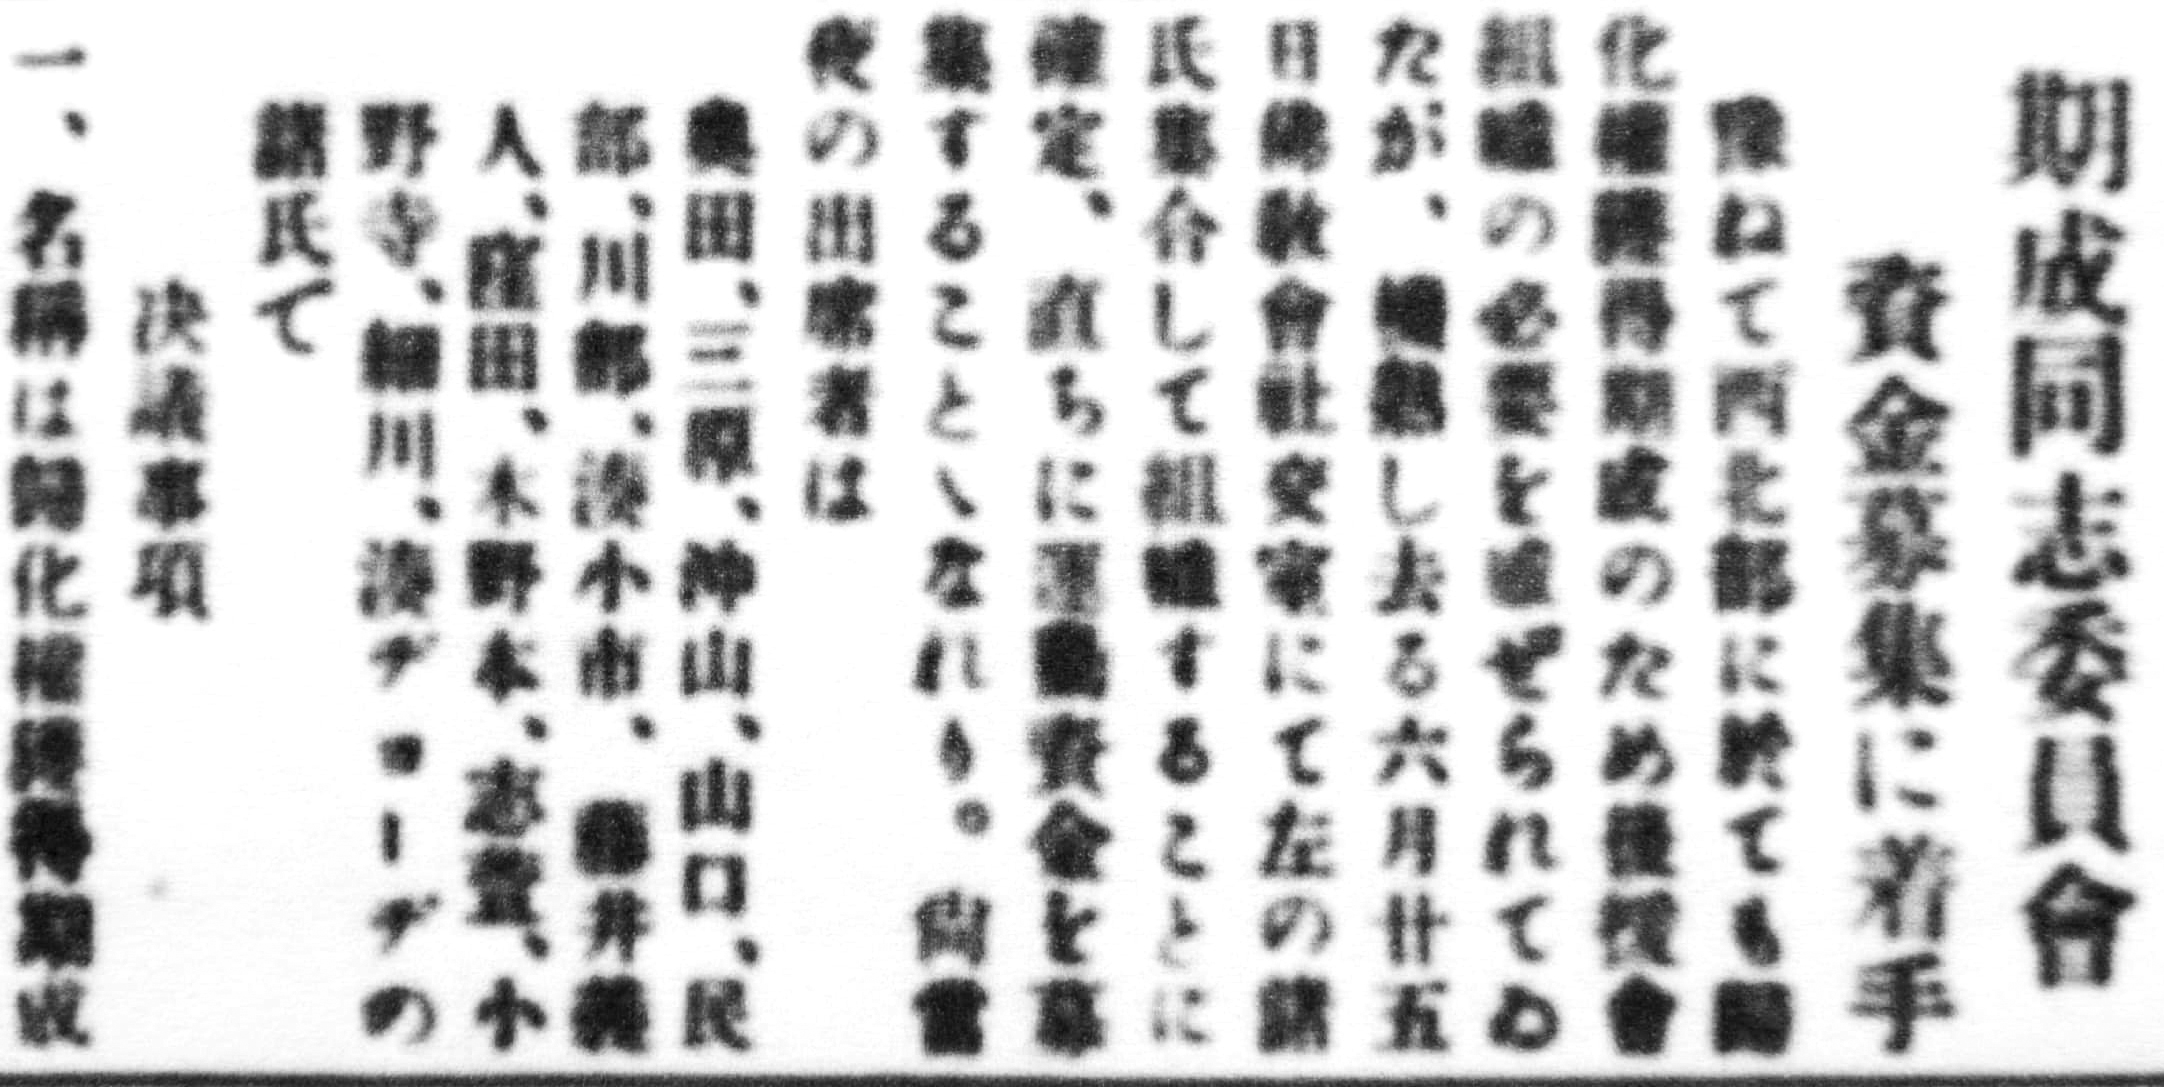 期成同志委員會
資金募集に着手
豫ねて西北部に於ても歸
化權獲得期成のため後援會
組織の必要を感ぜられてゐ
たが、機熟し去る六月廿五
日佛敎會社交室にて左の諸
氏集合して組織することに
確定、直ちに運動資金を募
集することゝなれり。尚當
夜の出席者は
奥田、三原、沖山、山口、民
部、川鄕、湊小市、藤井磯
人、窪田、木野本、志賀、小
野寺、細川、湊ヂヨーヂの
諸氏て
決議事項
一、名稱は歸化權獲得期成